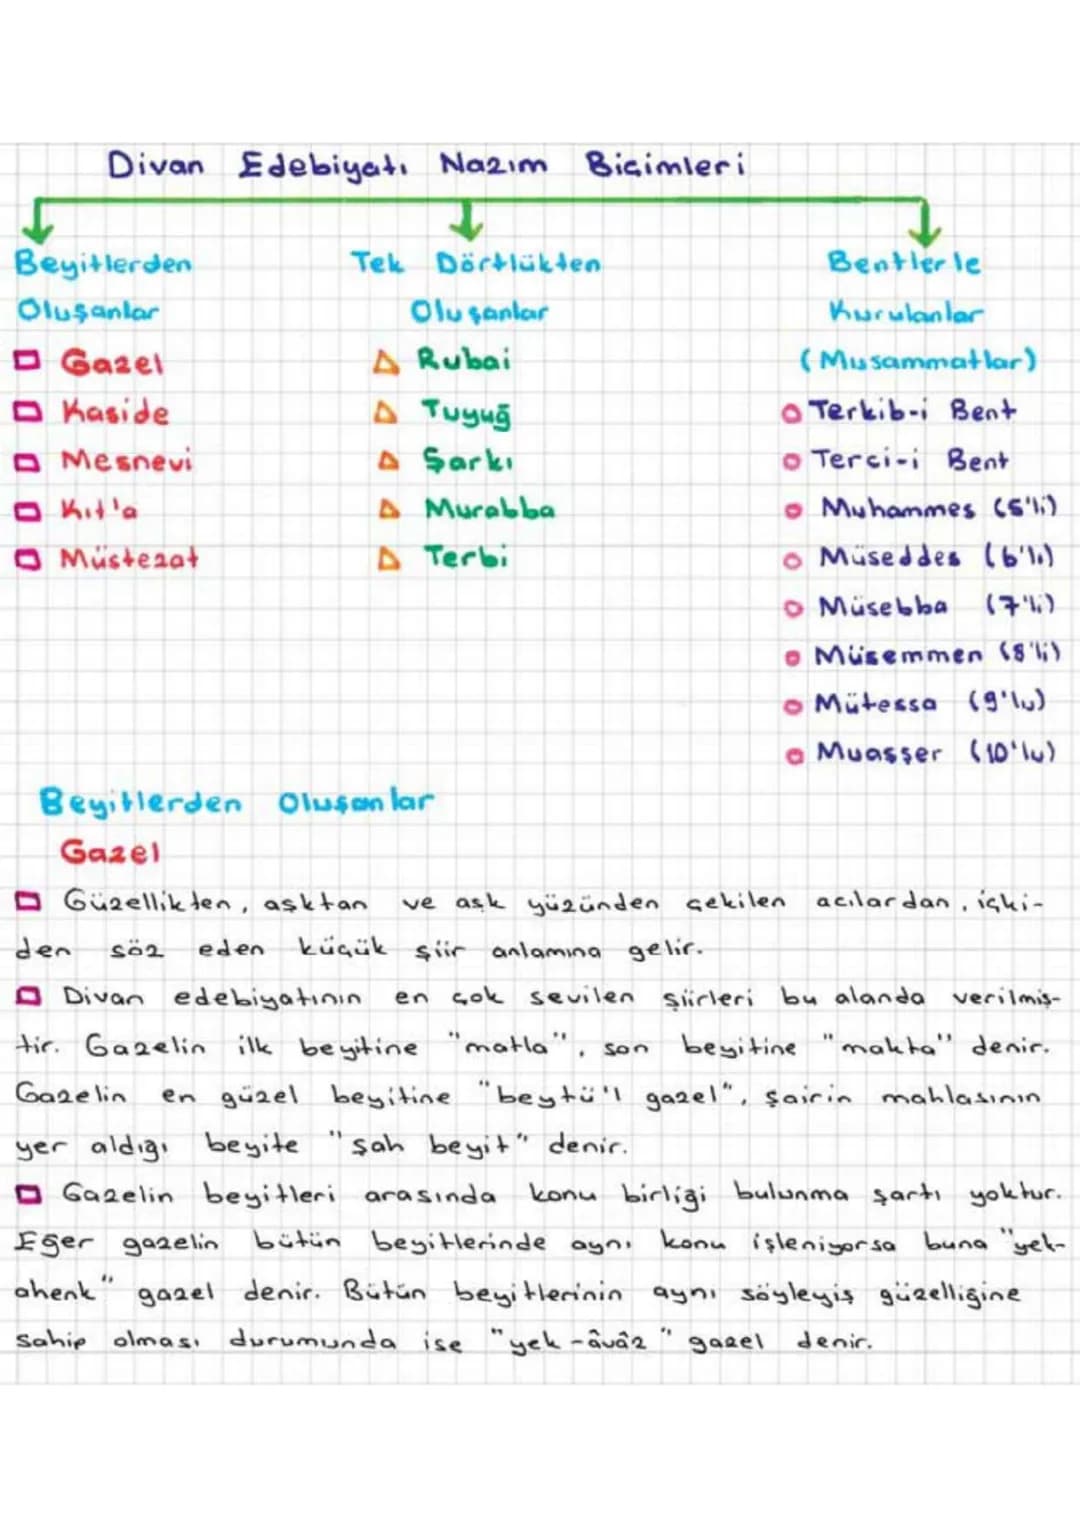 Divan Edebiyatı Nazım Biçimleri
Beyitlerden
Oluşanlar
Gazel
Kaside
Mesnevi
Kıt'a
Müstezat
Tek Dörtlükten
Oluşanlar
Rubai
Tuyuğ
Şarkı
Murabba
Terbi
Bentlerle
Kurulanlar
(Musammatlar)
Terkib-i Bent
Terci-i Bent
Muhammes (5'li)
Müseddes (6'lı)
Müsebba (7'li)
Müsemmen (8'li)
Mütessa (9'lu)
Muaşşer (10'lu)
Beyitlerden Oluşanlar
Gazel
Güzellikten, aşktan ve aşk yüzünden çekilen acılardan, içki-
den söz eden küçük şiir anlamına gelir.
Divan edebiyatının en çok sevilen şiirleri bu alanda verilmiş-
tir. Gazelin ilk beyitine "matla", son beyitine "makta" denir.
Gazelin en güzel beyitine "beytü'l gazel", şairin mahlasının
yer aldığı beyite "şah beyit" denir.
Gazelin beyitleri arasında konu birliği bulunma şartı yoktur.
Eğer gazelin bütün beyitlerinde aynı konu işleniyorsa buna "yek-
ahenk" gazel denir. Bütün beyitlerinin aynı söyleyiş güzelliğine
sahip olması durumunda ise "yek-âvâz" gazel denir.